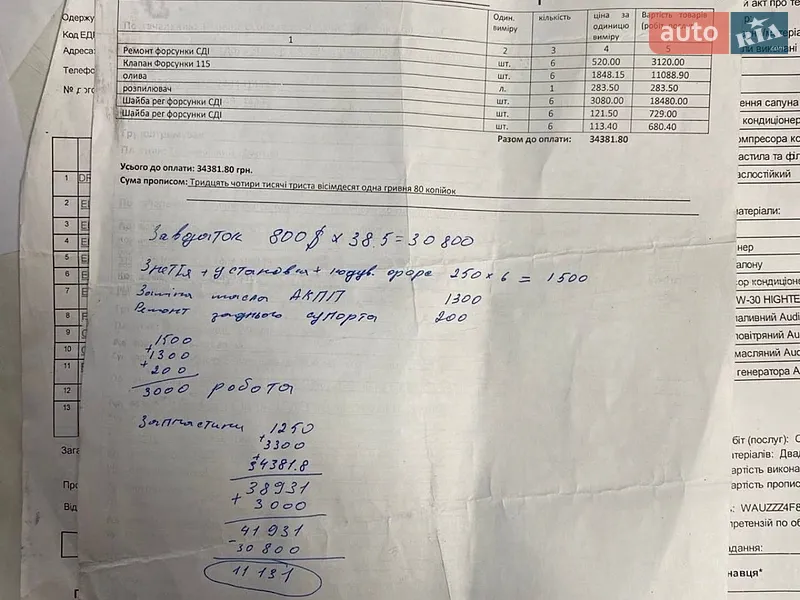 Один. виміру
кількість
ціна за одиницю виміру
Вартість товарів
1 2 3 4 5
Ремонт форсунки СДІ шт. 6 520.00 3120.00
Клапан Форсунки 115 шт. 6 1848.15 11088.90
олива л. 1 283.50 283.50
розпилювач шт. 6 3080.00 18480.00
Шайба рег форсунки СДІ шт. 6 121.50 729.00
Шайба рег форсунки СДІ шт. 6 113.40 680.40
Разом до оплати: 34381.80
Усього до оплати: 34381.80 грн.
Сума прописом: Тридцять чотири тисячі триста вісімдесят одна гривня 80 копійок
Завдаток 800$ х 38.5 = 30800
Зняття + установка + 250 х 6 = 1500
Заміна масла АКПП 1300
Ремонт заднього супорта 200
1500
+ 1300
+ 200
3000 робота
Запчастини 1250
+ 3300
+ 34381.8
38931
+ 3000
41931
- 30800
11131
Одержу
Код ЕД
Адреса:
Телефо
1
2
3
4
5
6
7
8
9
10
11
12
13
Зага
Про
Від
auto RIA.com
и акт про те
ення сапуна
кондиціонер
омпресора ко
астила та філ
аслостійкий
атеріали:
нер
алону
ор кондиціоне
W-30 HIGHTE
паливний Audi
овітряний Audi
масляний Audi
генератора A
біт (послуг): С
теріалів: Двад
артість викона
артість пропис
: WAUZZZ4F8
претензій по об
адання:
навця*